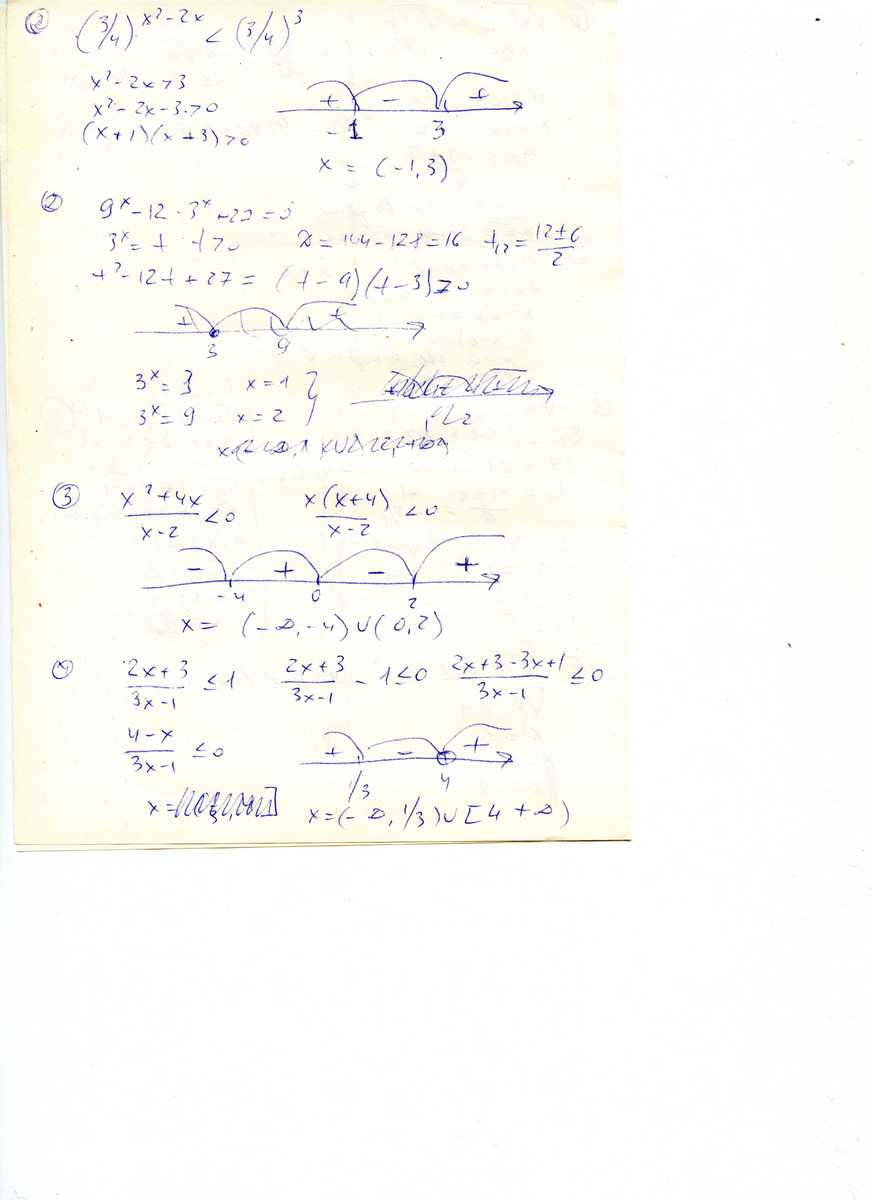 (3/4)^x²-2x < (3/4)³
x²-2x>3
x²-2x-3>0
(x+1)(x+3)>0
+ - +
-1 3
x = (-1,3)
② 9^x-12·3^x+27=0
3^x=t t>0 D=144-128=16 t₁₂=12±6/2
t²-12t+27= (t-9)(t-3)≥0
+ +
3 9
3^x=3 x=1
3^x=9 x=2
③ x²+4x/x-2 <0 x(x+4)/x-2 <0
- + - +
-4 0 2
x= (-∞,-4)∪(0,2)
2x+3/3x-1 ≤1 2x+3/3x-1 -1≤0 2x+3-3x+1/3x-1 ≤0
4-x/3x-1 ≤0
+ - +
1/3 4
x= x=(-∞,1/3)∪[4+∞)